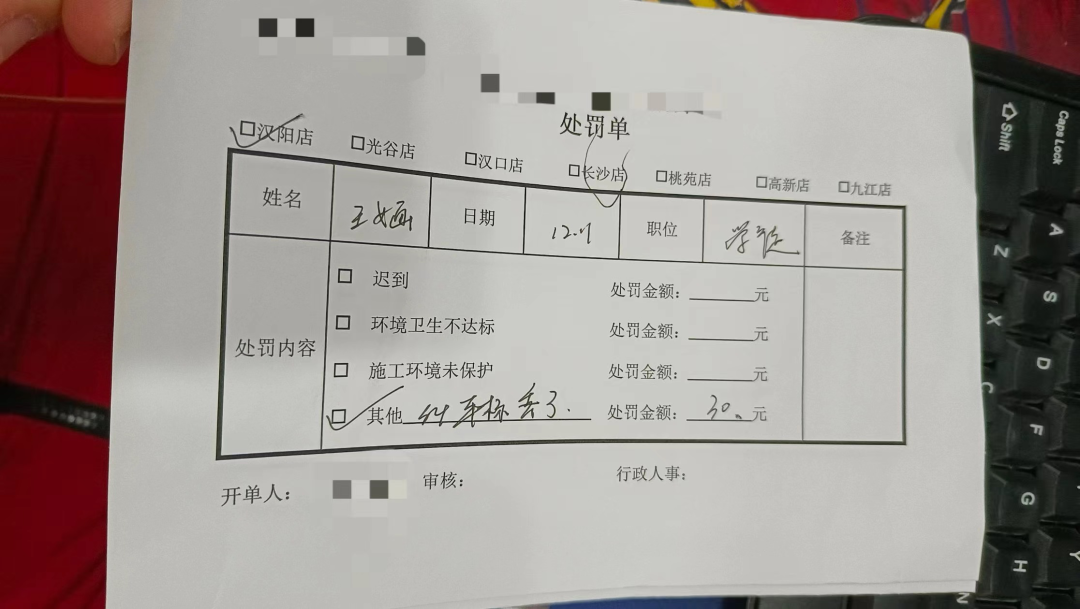 处罚单
□汉阳店 □光谷店 □汉口店 □长沙店 □桃苑店 □高新店 □九江店
姓名 王 日期 职位 学徒 备注
处罚内容
□ 迟到 处罚金额：______元
□ 环境卫生不达标 处罚金额：______元
□ 施工环境未保护 处罚金额：______元
□ 其他 车标丢了. 处罚金额：30元
开单人： 审核： 行政人事：
Caps Lock
Shift
A
Z
S
X
D
C
F
G
H
N
Y